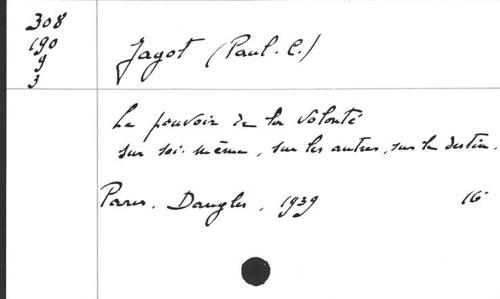 308
190
9
3
Jagot (Paul. C.)
Le pouvoir de la volonté
sur soi-même, sur les autres, sur le destin.
Paris. Dangles. 1939 16°